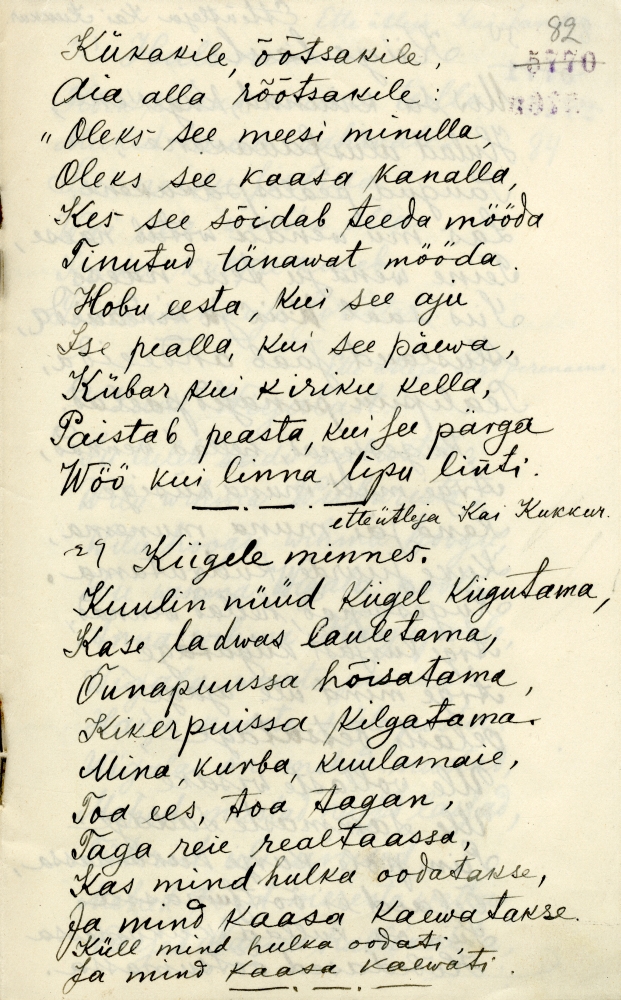 82
5770
Kükakile, õõtsakile,
Aia alla rõõtsakile:
„Oleks see meesi minulla,
Oleks see kaasa kanalla,
Kes see sõidab teeda mööda
Tinutud tänawat mööda.
Hobu eesta, kui see aju
Ise pealla, kui see päewa,
Kübar kui kiriku kella,
Paistab peasta, kui see pärga
Wöö kui linna lipu linti.
etteütleja Kai Kukkur.
29 Kiigele minnes.
Kuulin nüüd kiigel kiigutama,
Kase ladwas lauletama,
Õunapuussa hõisatama,
Kikerpuissa kilgatama.
Mina, kurba, kuulamaie,
Toa ees, toa tagan,
Taga reie realtaassa,
Kas mind hulka oodatakse,
Ja mind kaasa kaewatakse.
Küll mind hulka oodati,
Ja mind kaasa kaewati.